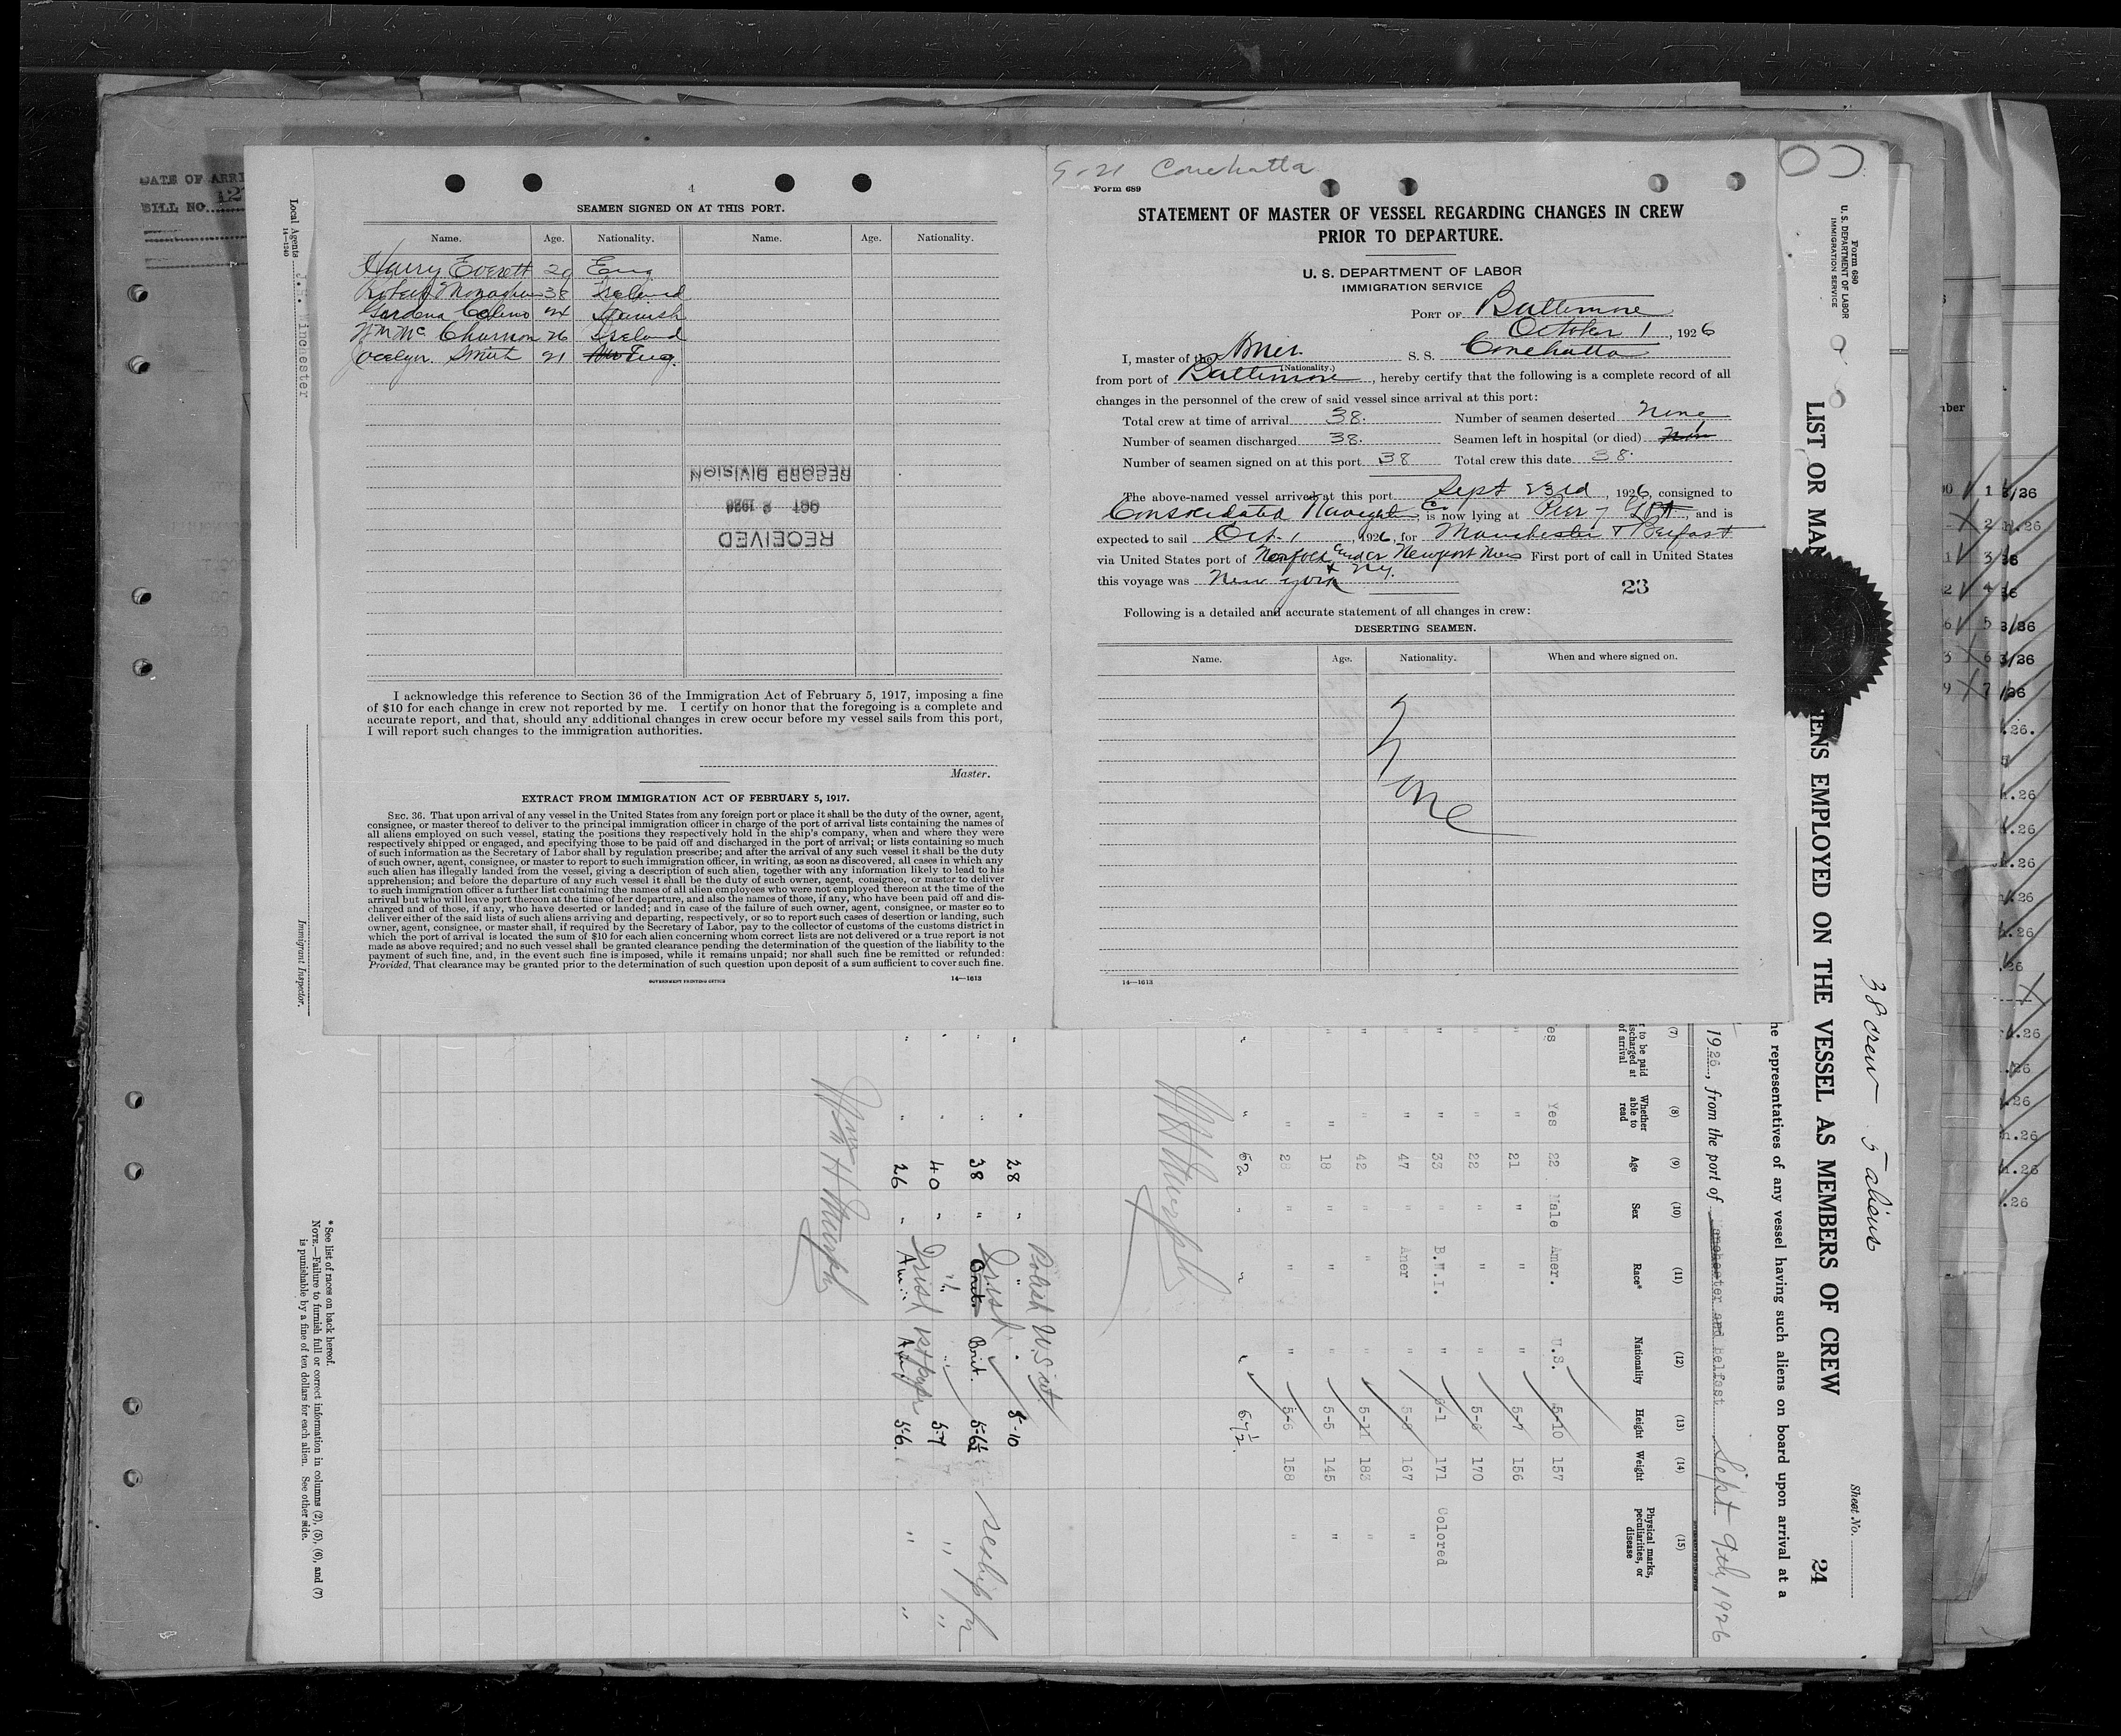 DATE OF ARRI
BILL NO.
Local Agents
14—1240
Winchester
Immigrant Inspector.
4
SEAMEN SIGNED ON AT THIS PORT.
Name. Age. Nationality. Name. Age. Nationality.
Harry Everett 29 Eng
Robert Monaghan 38 Ireland
24 Spanish
Wm Mc 26 Ireland
Jocelyn Smith 21 Eng.
RECORD DIVISION
OCT 2 1926
RECEIVED
I acknowledge this reference to Section 36 of the Immigration Act of February 5, 1917, imposing a fine
of $10 for each change in crew not reported by me. I certify on honor that the foregoing is a complete and
accurate report, and that, should any additional changes in crew occur before my vessel sails from this port,
I will report such changes to the immigration authorities.
Master.
EXTRACT FROM IMMIGRATION ACT OF FEBRUARY 5, 1917.
SEC. 36. That upon arrival of any vessel in the United States from any foreign port or place it shall be the duty of the owner, agent,
consignee, or master thereof to deliver to the principal immigration officer in charge of the port of arrival lists containing the names of
all aliens employed on such vessel, stating the positions they respectively hold in the ship's company, when and where they were
respectively shipped or engaged, and specifying those to be paid off and discharged in the port of arrival; or lists containing so much
of such information as the Secretary of Labor shall by regulation prescribe; and after the arrival of any such vessel it shall be the duty
of such owner, agent, consignee, or master to report to such immigration officer, in writing, as soon as discovered, all cases in which any
such alien has illegally landed from the vessel, giving a description of such alien, together with any information likely to lead to his
apprehension; and before the departure of any such vessel it shall be the duty of such owner, agent, consignee, or master to deliver
to such immigration officer a further list containing the names of all alien employees who were not employed thereon at the time of the
arrival but who will leave port thereon at the time of her departure, and also the names of those, if any, who have been paid off and dis-
charged and of those, if any, who have deserted or landed; and in case of the failure of such owner, agent, consignee, or master so to
deliver either of the said lists of such aliens arriving and departing, respectively, or so to report such cases of desertion or landing, such
owner, agent, consignee, or master shall, if required by the Secretary of Labor, pay to the collector of customs of the customs district in
which the port of arrival is located the sum of $10 for each alien concerning whom correct lists are not delivered or a true report is not
made as above required; and no such vessel shall be granted clearance pending the determination of the question of the liability to the
payment of such fine, and, in the event such fine is imposed, while it remains unpaid; nor shall such fine be remitted or refunded:
Provided, That clearance may be granted prior to the determination of such question upon deposit of a sum sufficient to cover such fine.
GOVERNMENT PRINTING OFFICE 14—1613
9-21 Conehatta
Form 689
STATEMENT OF MASTER OF VESSEL REGARDING CHANGES IN CREW
PRIOR TO DEPARTURE.
U. S. DEPARTMENT OF LABOR
IMMIGRATION SERVICE
PORT OF Baltimore
October 1, 1926
I, master of the Amer. S. S. Conehatta
(Nationality.)
from port of Baltimore, hereby certify that the following is a complete record of all
changes in the personnel of the crew of said vessel since arrival at this port:
Total crew at time of arrival 38. Number of seamen deserted None
Number of seamen discharged 38. Seamen left in hospital (or died)
Number of seamen signed on at this port 38 Total crew this date 38.
The above-named vessel arrived at this port Sept 23rd, 1926, consigned to
Consolidated Navigation Co, is now lying at Pier 7, and is
expected to sail Oct. 1, 1926, for Manchester & Belfast
via United States port of Norfolk and or Newport News & N.Y. First port of call in United States
this voyage was New York
23
Following is a detailed and accurate statement of all changes in crew:
DESERTING SEAMEN.
Name. Age. Nationality. When and where signed on.
None
14—1613
Form 680
U. S. DEPARTMENT OF LABOR
IMMIGRATION SERVICE
LIST OR MAN ENS EMPLOYED ON THE VESSEL AS MEMBERS OF CREW
38 crew 5 aliens
Sheet No.
24
he representatives of any vessel having such aliens on board upon arrival at a
1926, from the port of Manchester and Belfast Sept 9th, 1926
(7) (8) (9) (10) (11) (12) (13) (14) (15)
r to be paid
ischarged at
of arrival
Whether
able to
read
Age
Sex
Race*
Nationality
Height
Weight
Physical marks,
peculiarities, or
disease
es Yes 22 Male Amer. U.S. 5-10 157
" " 21 " " " 5-7 156
" " 22 " " " 5-6 170
" " 33 " B.W.I. " 6-1 171 Colored
" " 47 " Amer " 5-8 167 "
" " 42 " " " 5-11 183 "
" " 18 " " " 5-5 145 "
" 28 " " " 5-6 158 "
" " 52 " " " 5-7½.
W H Murphy
Polish U.S. cit.
" " 28 " " " 5-10
" " 38 " Irish Brit. 5-6½ reship for
" " 40 " " " 5-7 " "
" " 26 " Irish 1st paper 5-6. " "
Wm H Murphy
* See list of races on back hereof.
NOTE.—Failure to furnish full or correct information in columns (2), (5), (6), and (7)
is punishable by a fine of ten dollars for each alien. See other side.